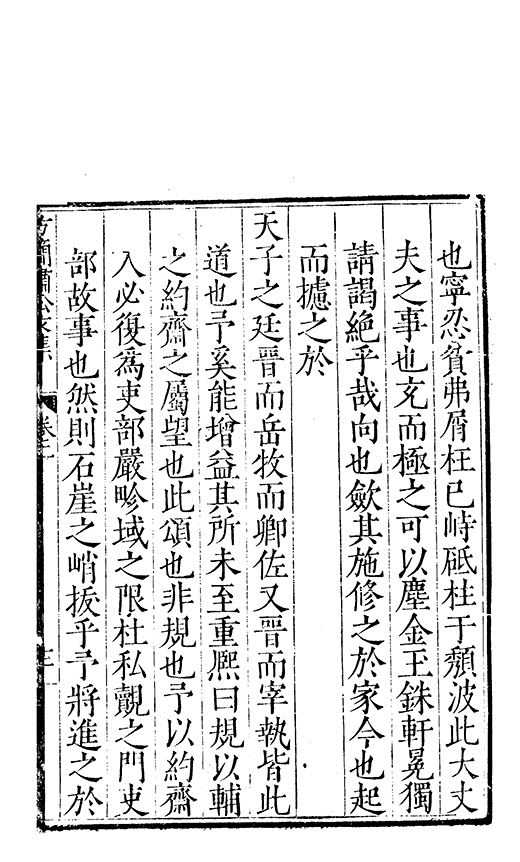 也寧忍貧弗屑枉已峙砥柱于頹波此大丈
夫之事也充而極之可以塵金玉銖軒冕獨
請謁絕乎哉向也歛其施修之於家今也起
而攄之於
天子之廷晉而岳牧而卿佐又晉而宰執皆此
道也予奚能增益其所未至重熈曰規以輔
之約齋之屬望也此頌也非規也予以約齋
入必復爲吏部嚴畛域之限杜私覿之門吏
部故事也然則石崖之峭拔乎予將進之於
方簡肅公文集